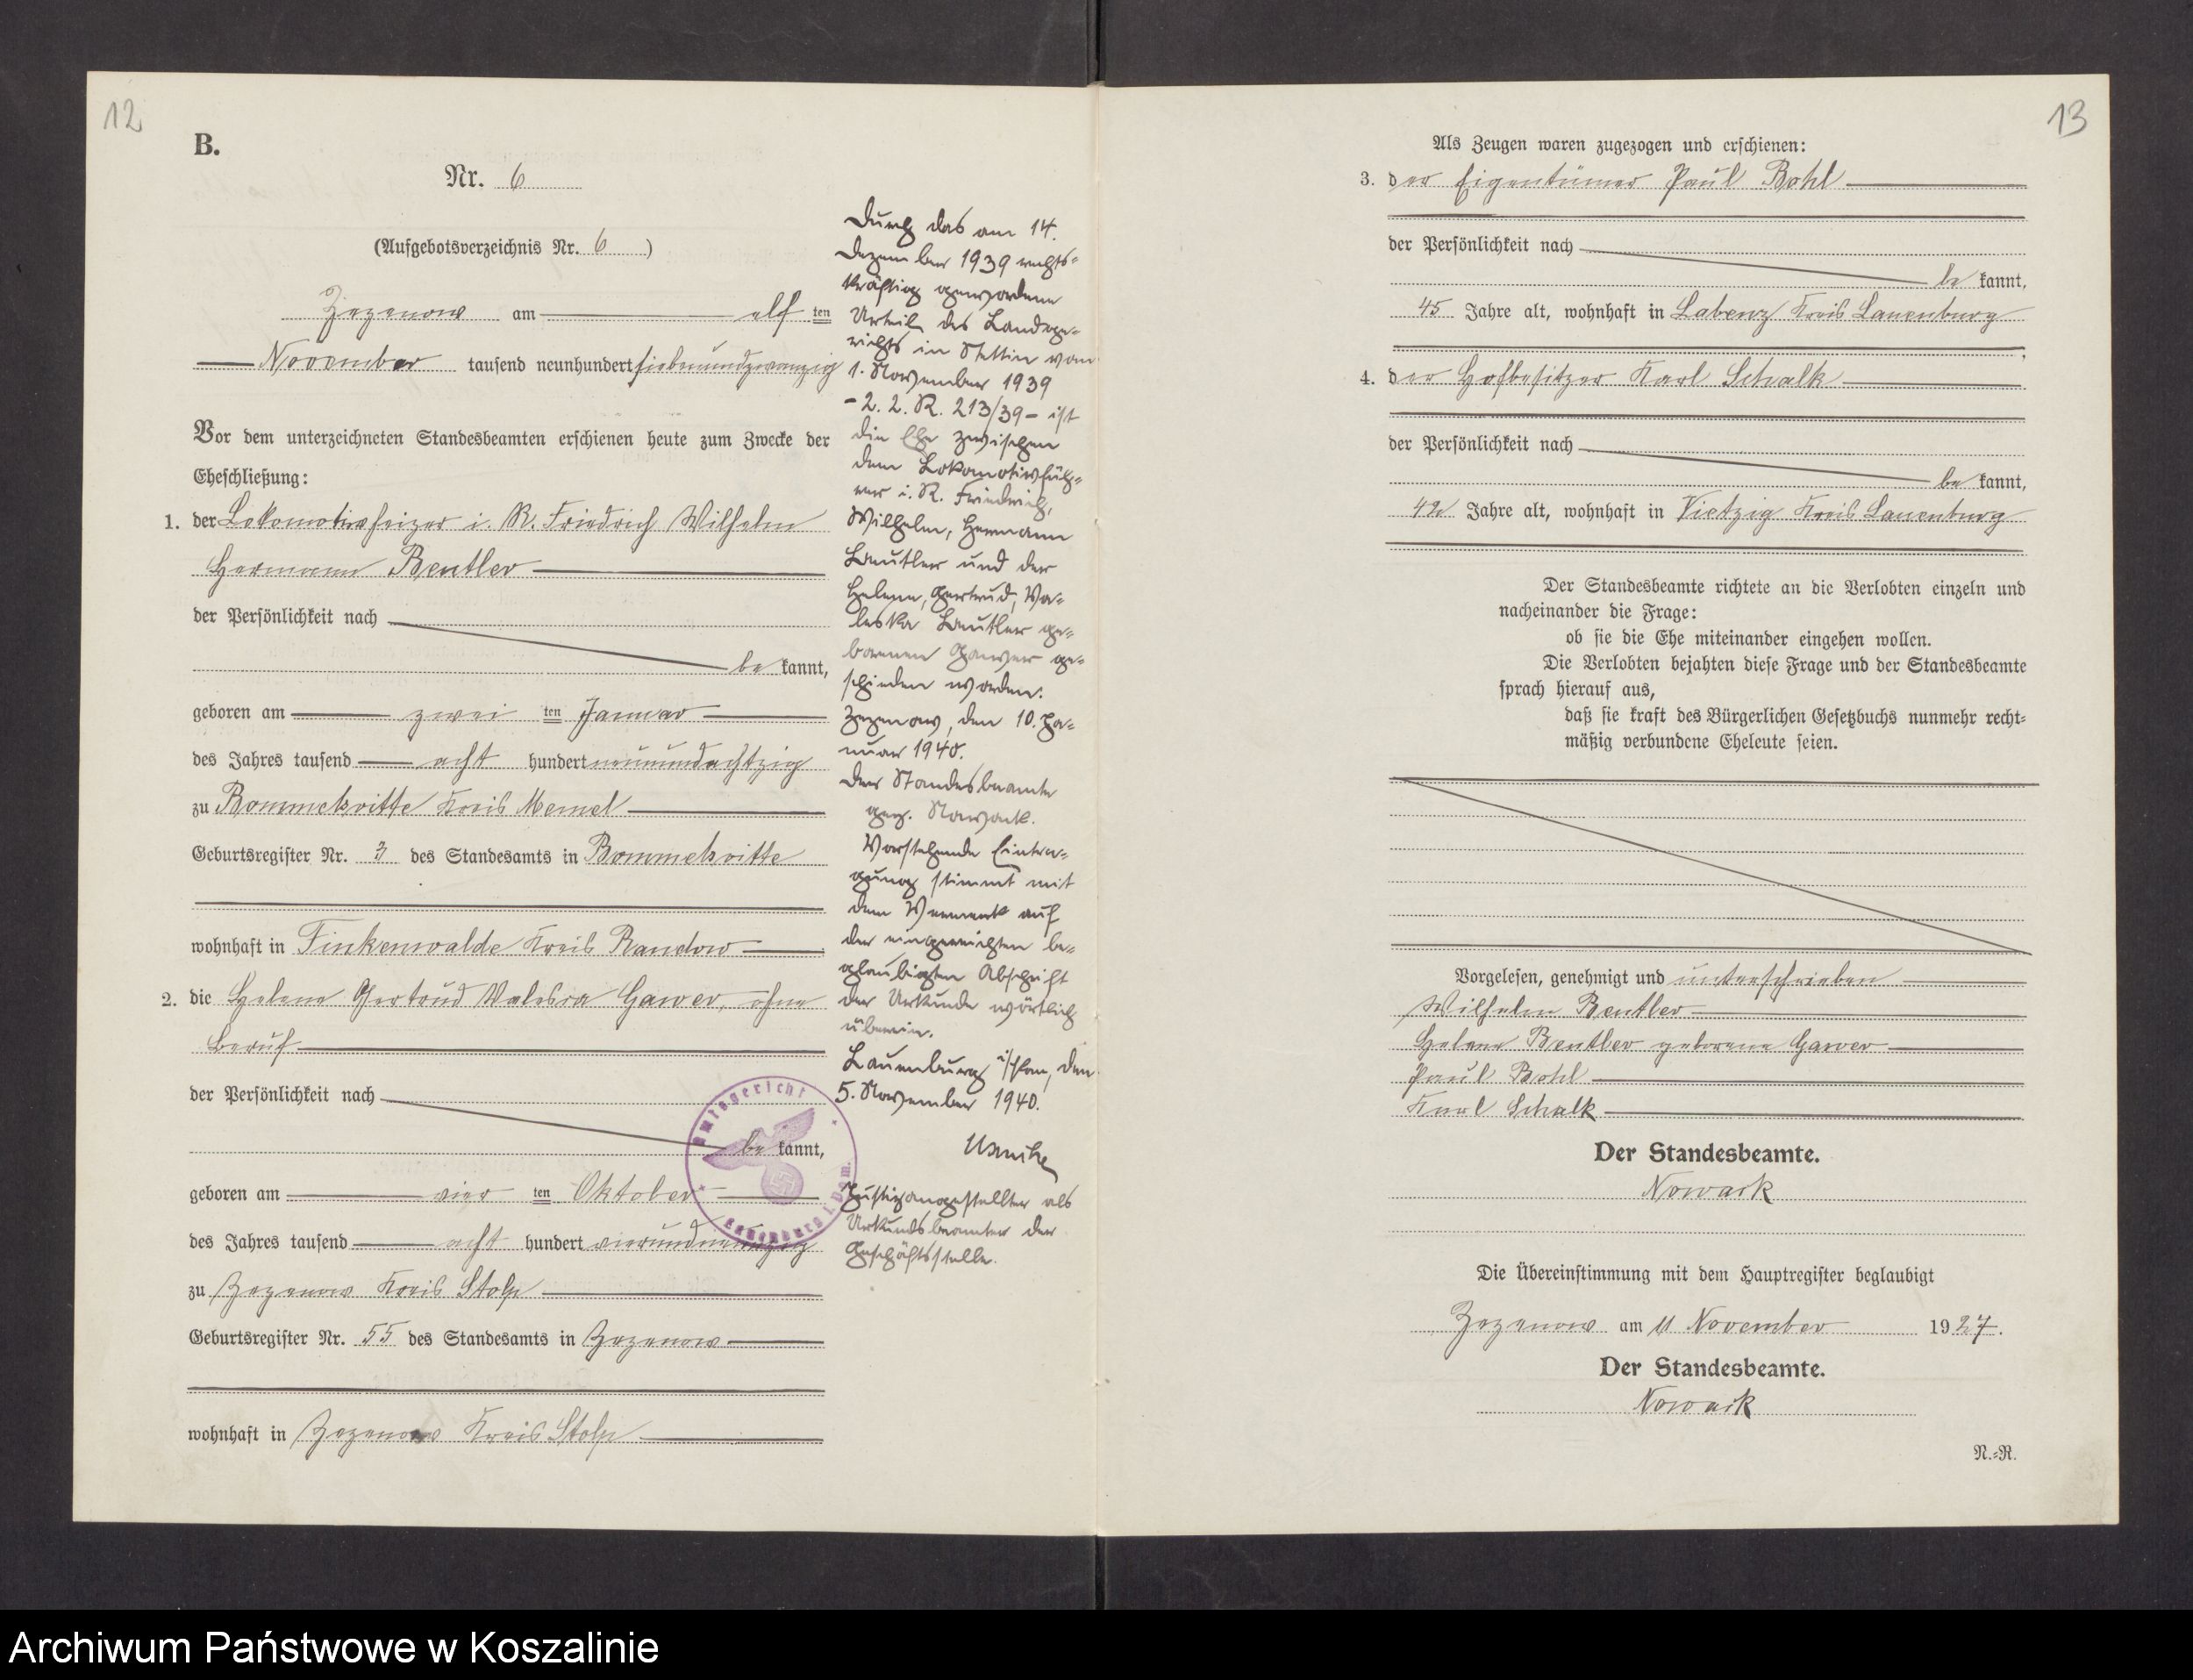 12
B.
Nr. 6
(Aufgebotsverzeichnis Nr. 6)
Zezenow am elf ten
November tausend neunhundert siebenundzwanzig
Vor dem unterzeichneten Standesbeamten erschienen heute zum Zwecke der
Eheschließung:
1. der Lokomotivheizer i. R. Friedrich Wilhelm
Hermann Beutler
der Persönlichkeit nach
be kannt,
geboren am zwei ten Januar
des Jahres tausend acht hundert neunundachtzig
zu Bommelsvitte Kreis Memel
Geburtsregister Nr. 3 des Standesamts in Bommelsvitte
wohnhaft in Finkenwalde Kreis Randow
2. die Helene Gertrud Valesca Gawer, ohne
Beruf
der Persönlichkeit nach
be kannt,
geboren am vier ten Oktober
des Jahres tausend acht hundert vierundneunzig
zu Zezenow Kreis Stolp
Geburtsregister Nr. 55 des Standesamts in Zezenow
wohnhaft in Zezenow Kreis Stolp
Durch das am 14.
Dezember 1939 rechts-
kräftig gewordene
Urteil des Landge-
richts in Stettin vom
1. November 1939
- 2. 2. R. 213/39 - ist
die Ehe zwischen
dem Lokomotivfüh-
rer i. R. Friedrich,
Wilhelm, Hermann
Beutler und der
Helene, Gertrud, Va-
leska Beutler ge-
borenen Gawer ge-
schieden worden.
Zezenow, den 10. Ja-
nuar 1940.
Der Standesbeamte
gez. Nowack.
Vorstehende Eintra-
gung stimmt mit
dem Vermerk auf
der eingereichten be-
glaubigten Abschrift
der Urkunde wörtlich
überein.
Lauenburg i/Pom, den
5. November 1940.
Justizangestellter als
Urkundsbeamter der
Geschäftsstelle.
Amtsgericht
Lauenburg i. Pom.
13
Als Zeugen waren zugezogen und erschienen:
3. der Eigentümer Paul Bohl
der Persönlichkeit nach
be kannt,
45 Jahre alt, wohnhaft in Labenz Kreis Lauenburg
4. der Hofbesitzer Karl Schalk
der Persönlichkeit nach
be kannt,
42 Jahre alt, wohnhaft in Vietzig Kreis Lauenburg
Der Standesbeamte richtete an die Verlobten einzeln und
nacheinander die Frage:
ob sie die Ehe miteinander eingehen wollen.
Die Verlobten bejahten diese Frage und der Standesbeamte
sprach hierauf aus,
daß sie kraft des Bürgerlichen Gesetzbuchs nunmehr recht-
mäßig verbundene Eheleute seien.
Vorgelesen, genehmigt und unterschrieben
Wilhelm Beutler
Helene Beutler geborene Gawer
Paul Bohl
Karl Schalk
Der Standesbeamte.
Nowack
Die Übereinstimmung mit dem Hauptregister beglaubigt
Zezenow am 11 November 1927.
Der Standesbeamte.
Nowack
N.-R.
Archiwum Państwowe w Koszalinie